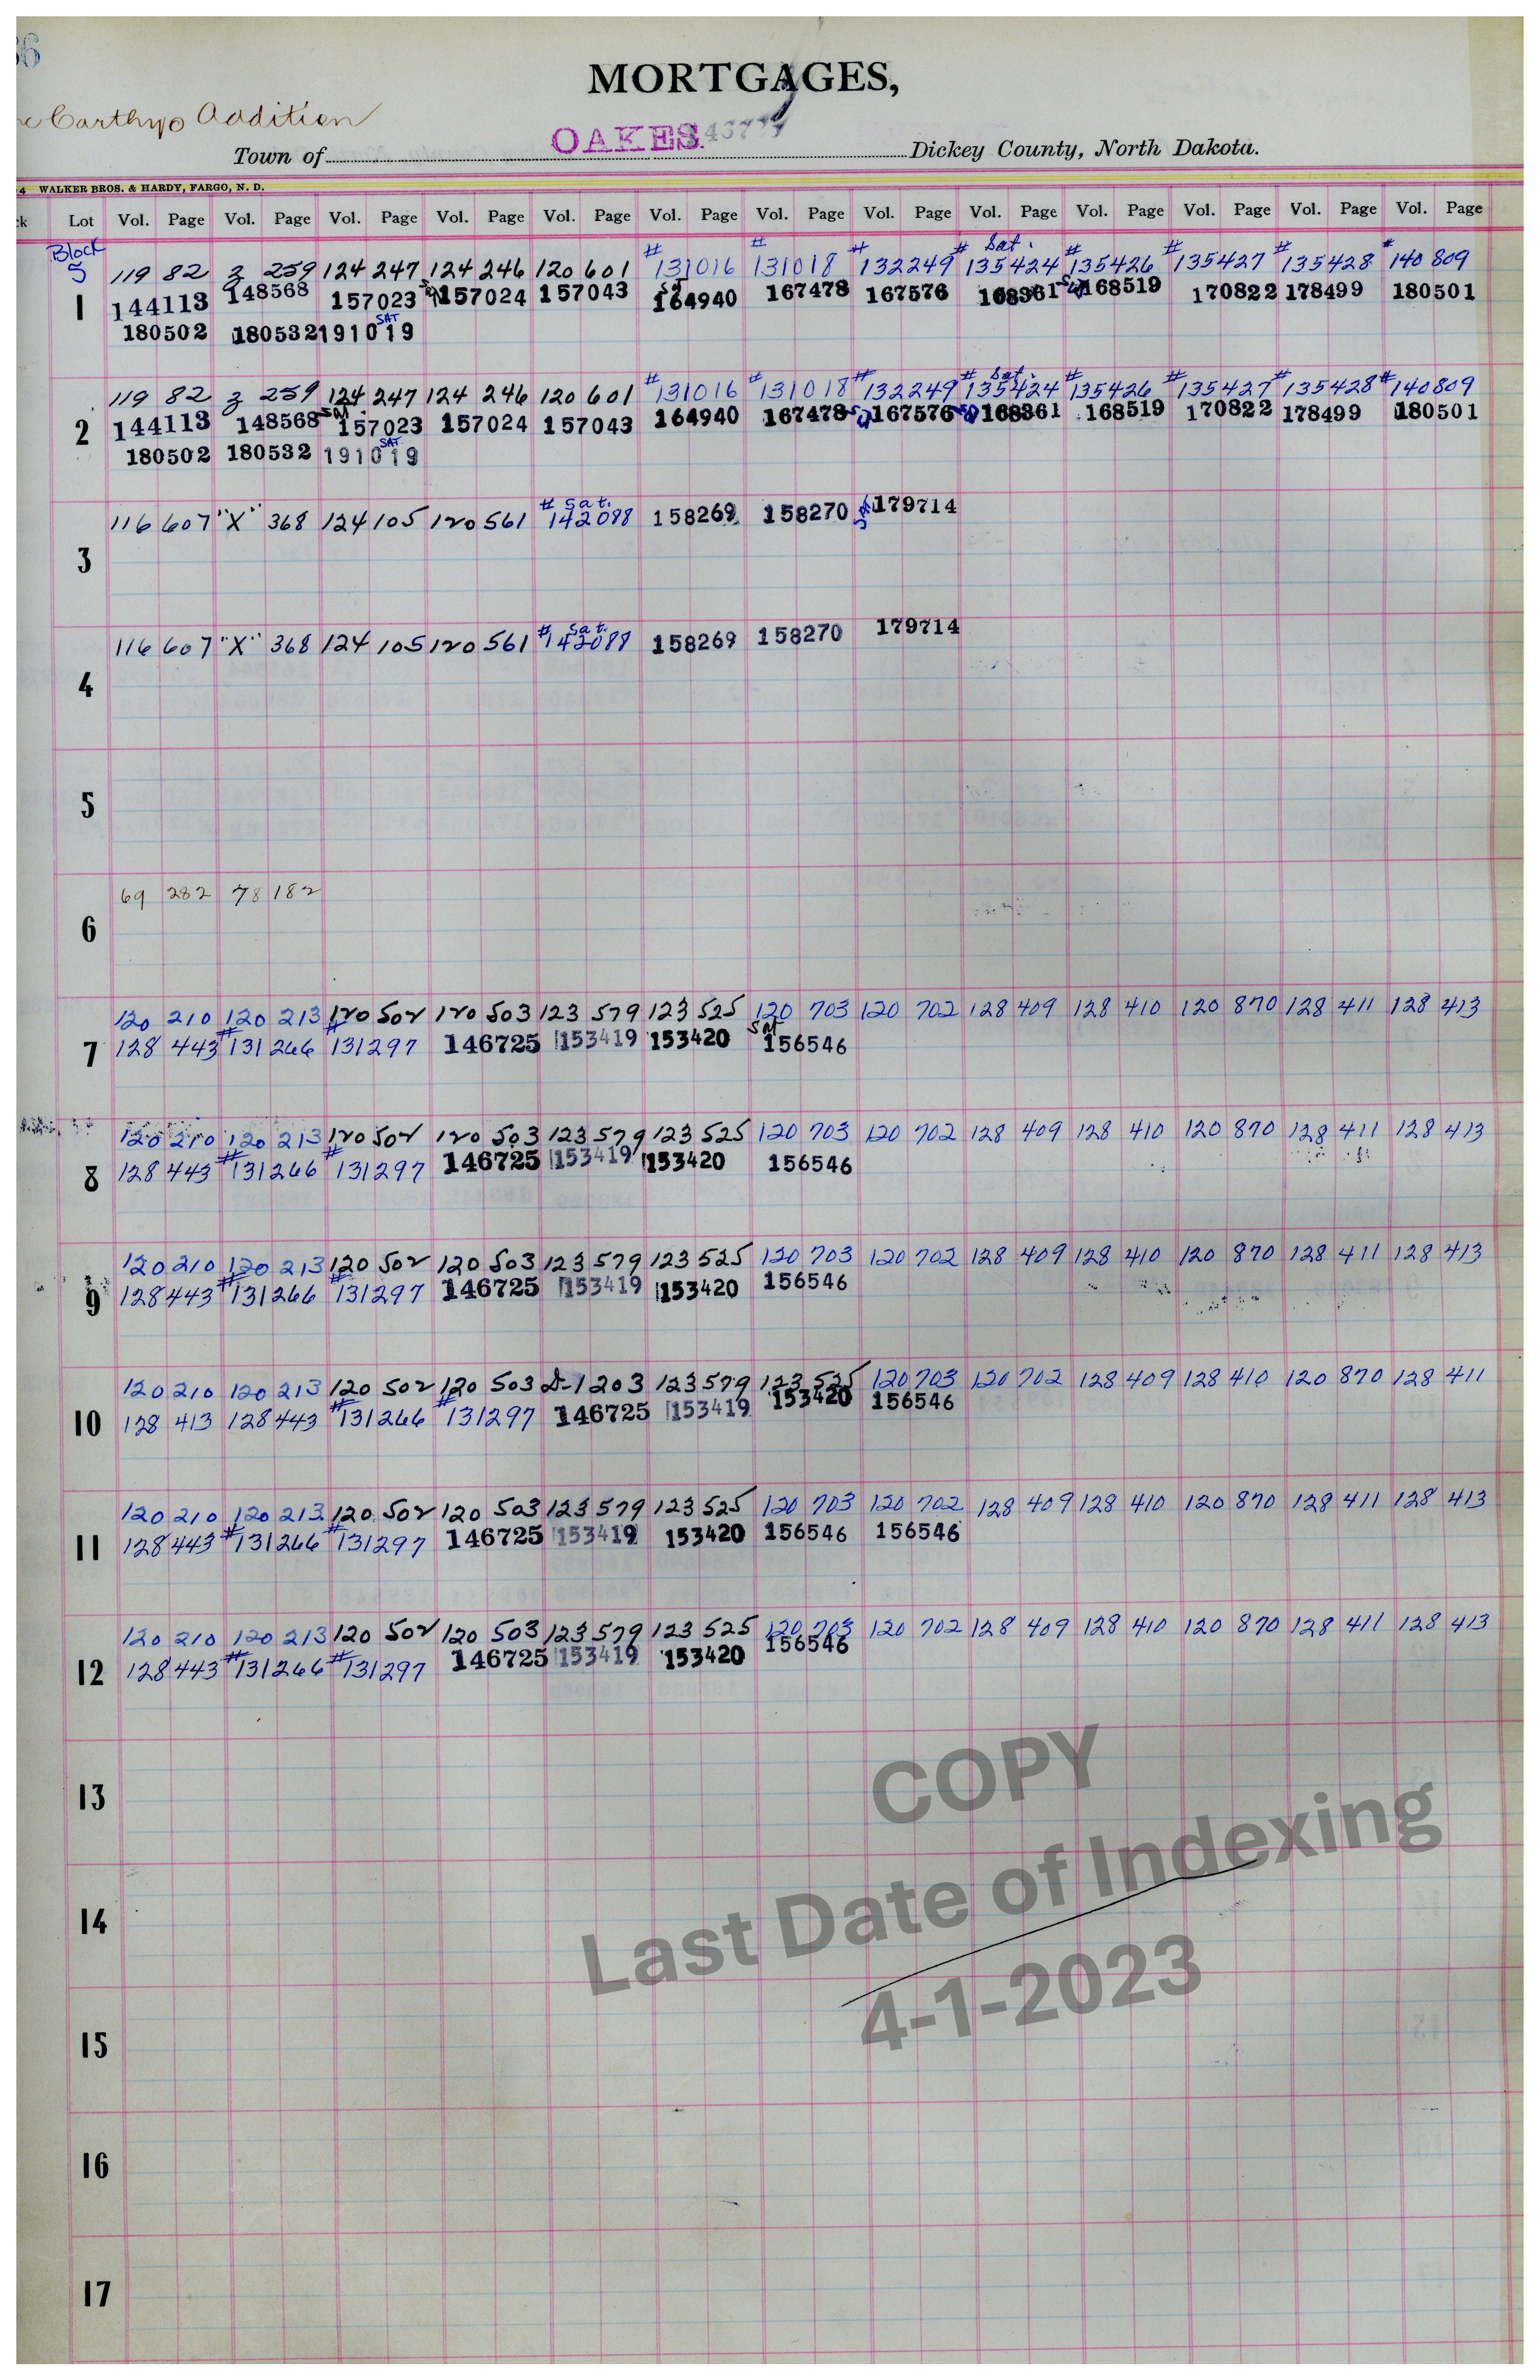 36
MORTGAGES,
Carthys Addition
Town of OAKES. Dickey County, North Dakota.
4 WALKER BROS. & HARDY, FARGO, N. D.
ck Lot Vol. Page Vol. Page Vol. Page Vol. Page Vol. Page Vol. Page Vol. Page Vol. Page Vol. Page Vol. Page Vol. Page Vol. Page Vol. Page
Block # # # # Sat. # # # #
5 119 82 3 259 124 247 124 246 120 601 131016 131018 132249 135424 135426 135427 135428 140809
1 144113 148568 157023 157024 157043 164940 167478 167576 168361 168519 170822 178499 180501
180502 180532 191019 SAT
119 82 3 259 124 247 124 246 120 601 #131016 #131018 #132249 # Sat. 135424 #135426 #135427 #135428 #140809
2 144113 148568 Sat. 157023 157024 157043 164940 167478 167576 168361 168519 170822 178499 180501
180502 180532 191019 SAT
116 607 "X" 368 124 105 120 561 # Sat. 142088 158269 158270 179714
3
116 607 "X" 368 124 105 120 561 # Sat. 142088 158269 158270 179714
4
5
69 282 78 182
6
120 210 120 213 120 502 120 503 123 579 123 525 120 703 120 702 128 409 128 410 120 870 128 411 128 413
7 128 443 #131266 #131297 146725 153419 153420 Sat 156546
120 210 120 213 120 502 120 503 123 579 123 525 120 703 120 702 128 409 128 410 120 870 128 411 128 413
8 128 443 #131266 #131297 146725 153419 153420 156546
120 210 120 213 120 502 120 503 123 579 123 525 120 703 120 702 128 409 128 410 120 870 128 411 128 413
9 128 443 #131266 #131297 146725 153419 153420 156546
120 210 120 213 120 502 120 503 D-1 203 123 579 123 525 120 703 120 702 128 409 128 410 120 870 128 411
10 128 413 128 443 #131266 #131297 146725 153419 153420 156546
120 210 120 213 120 502 120 503 123 579 123 525 120 703 120 702 128 409 128 410 120 870 128 411 128 413
11 128 443 #131266 #131297 146725 153419 153420 156546 156546
120 210 120 213 120 502 120 503 123 579 123 525 120 703 120 702 128 409 128 410 120 870 128 411 128 413
12 128 443 #131266 #131297 146725 153419 153420 156546
13
14
15
16
17
COPY
Last Date of Indexing
4-1-2023